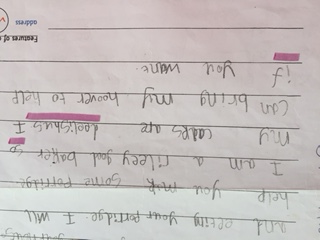 and eating your porridge. I will
help you mak some porridge
I am a rileey god bakeer so
my cakes are deelishus I
can bring my hoover to help
if you want.
address
Features of